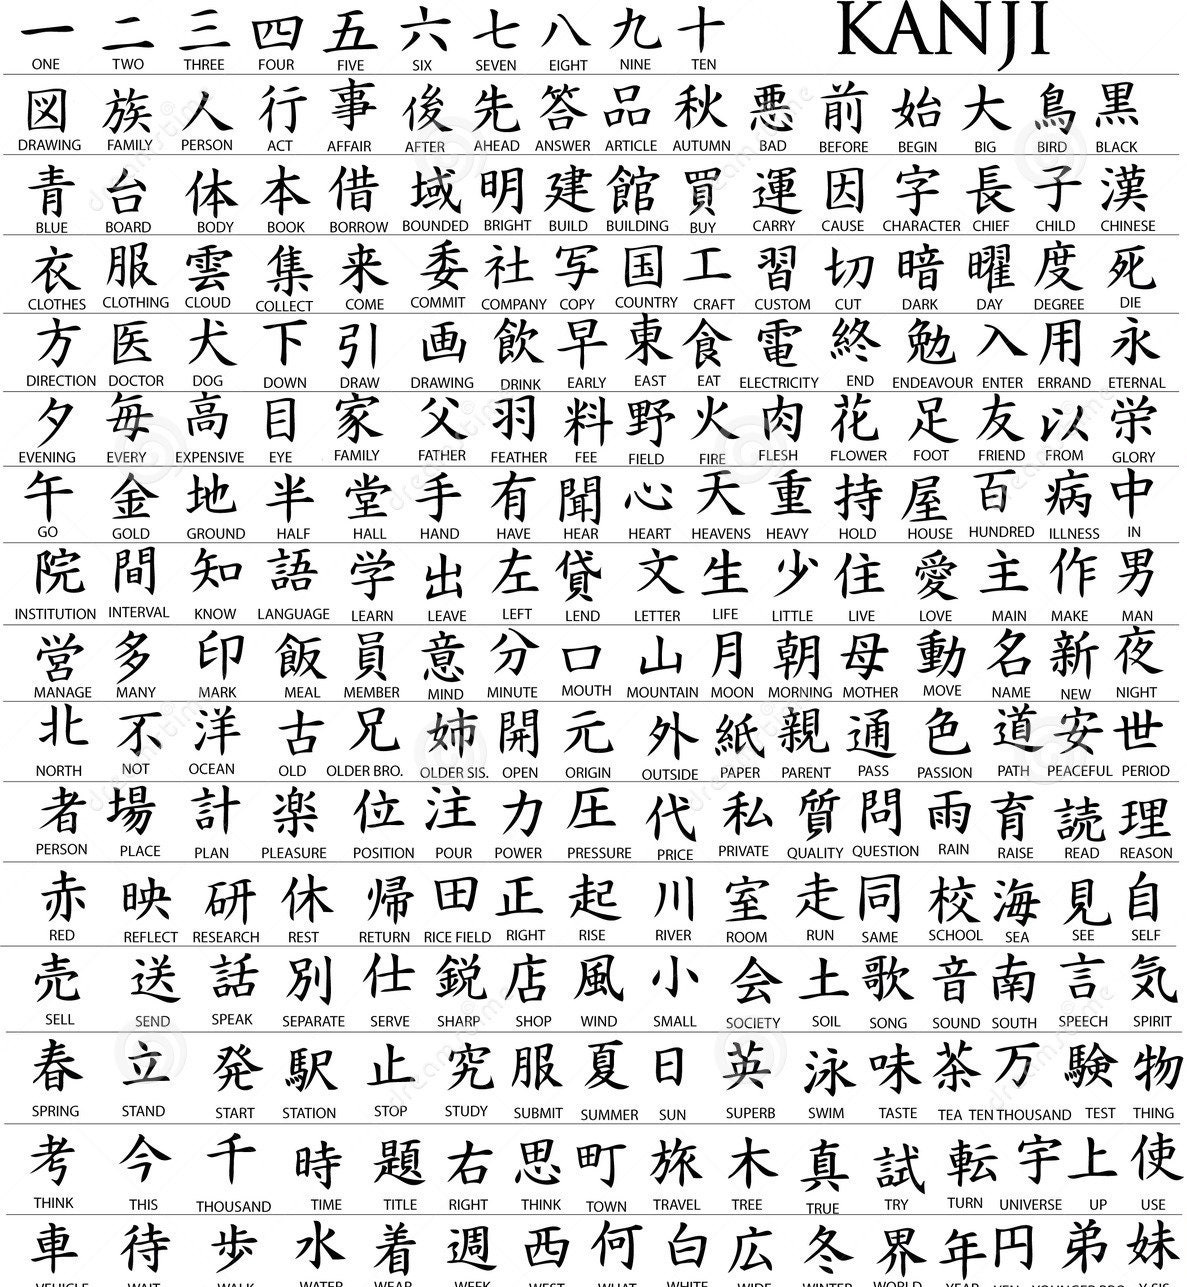 一 二 三 四 五 六 七 八 九 十 KANJI
ONE TWO THREE FOUR FIVE SIX SEVEN EIGHT NINE TEN
図 族 人 行 事 後 先 答 品 秋 悪 前 始 大 鳥 黒
DRAWING FAMILY PERSON ACT AFFAIR AFTER AHEAD ANSWER ARTICLE AUTUMN BAD BEFORE BEGIN BIG BIRD BLACK
青 台 体 本 借 域 明 建 館 買 運 因 字 長 子 漢
BLUE BOARD BODY BOOK BORROW BOUNDED BRIGHT BUILD BUILDING BUY CARRY CAUSE CHARACTER CHIEF CHILD CHINESE
衣 服 雲 集 来 委 社 写 国 工 習 切 暗 曜 度 死
CLOTHES CLOTHING CLOUD COLLECT COME COMMIT COMPANY COPY COUNTRY CRAFT CUSTOM CUT DARK DAY DEGREE DIE
方 医 犬 下 引 画 飲 早 東 食 電 終 勉 入 用 永
DIRECTION DOCTOR DOG DOWN DRAW DRAWING DRINK EARLY EAST EAT ELECTRICITY END ENDEAVOUR ENTER ERRAND ETERNAL
夕 毎 高 目 家 父 羽 料 野 火 肉 花 足 友 以 栄
EVENING EVERY EXPENSIVE EYE FAMILY FATHER FEATHER FEE FIELD FIRE FLESH FLOWER FOOT FRIEND FROM GLORY
午 金 地 半 堂 手 有 聞 心 天 重 持 屋 百 病 中
GO GOLD GROUND HALF HALL HAND HAVE HEAR HEART HEAVENS HEAVY HOLD HOUSE HUNDRED ILLNESS IN
院 間 知 語 学 出 左 貸 文 生 少 住 愛 主 作 男
INSTITUTION INTERVAL KNOW LANGUAGE LEARN LEAVE LEFT LEND LETTER LIFE LITTLE LIVE LOVE MAIN MAKE MAN
営 多 印 飯 員 意 分 口 山 月 朝 母 動 名 新 夜
MANAGE MANY MARK MEAL MEMBER MIND MINUTE MOUTH MOUNTAIN MOON MORNING MOTHER MOVE NAME NEW NIGHT
北 不 洋 古 兄 姉 開 元 外 紙 親 通 色 道 安 世
NORTH NOT OCEAN OLD OLDER BRO. OLDER SIS. OPEN ORIGIN OUTSIDE PAPER PARENT PASS PASSION PATH PEACEFUL PERIOD
者 場 計 楽 位 注 力 圧 代 私 質 問 雨 育 読 理
PERSON PLACE PLAN PLEASURE POSITION POUR POWER PRESSURE PRICE PRIVATE QUALITY QUESTION RAIN RAISE READ REASON
赤 映 研 休 帰 田 正 起 川 室 走 同 校 海 見 自
RED REFLECT RESEARCH REST RETURN RICE FIELD RIGHT RISE RIVER ROOM RUN SAME SCHOOL SEA SEE SELF
売 送 話 別 仕 鋭 店 風 小 会 土 歌 音 南 言 気
SELL SEND SPEAK SEPARATE SERVE SHARP SHOP WIND SMALL SOCIETY SOIL SONG SOUND SOUTH SPEECH SPIRIT
春 立 発 駅 止 究 服 夏 日 英 泳 味 茶 万 験 物
SPRING STAND START STATION STOP STUDY SUBMIT SUMMER SUN SUPERB SWIM TASTE TEA TEN THOUSAND TEST THING
考 今 千 時 題 右 思 町 旅 木 真 試 転 宇 上 使
THINK THIS THOUSAND TIME TITLE RIGHT THINK TOWN TRAVEL TREE TRUE TRY TURN UNIVERSE UP USE
車 待 歩 水 着 週 西 何 白 広 冬 界 年 円 弟 妹